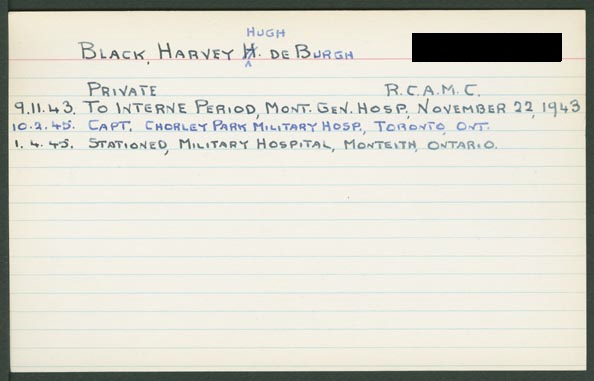 HUGH
BLACK, HARVEY H. DE BURGH
PRIVATE R.C.A.M.C.
9.11.43. TO INTERNE PERIOD, MONT. GEN. HOSP., NOVEMBER 22, 1943
10.2.45. CAPT. CHORLEY PARK MILITARY HOSP., TORONTO, ONT.
1.4.45. STATIONED, MILITARY HOSPITAL, MONTEITH, ONTARIO.